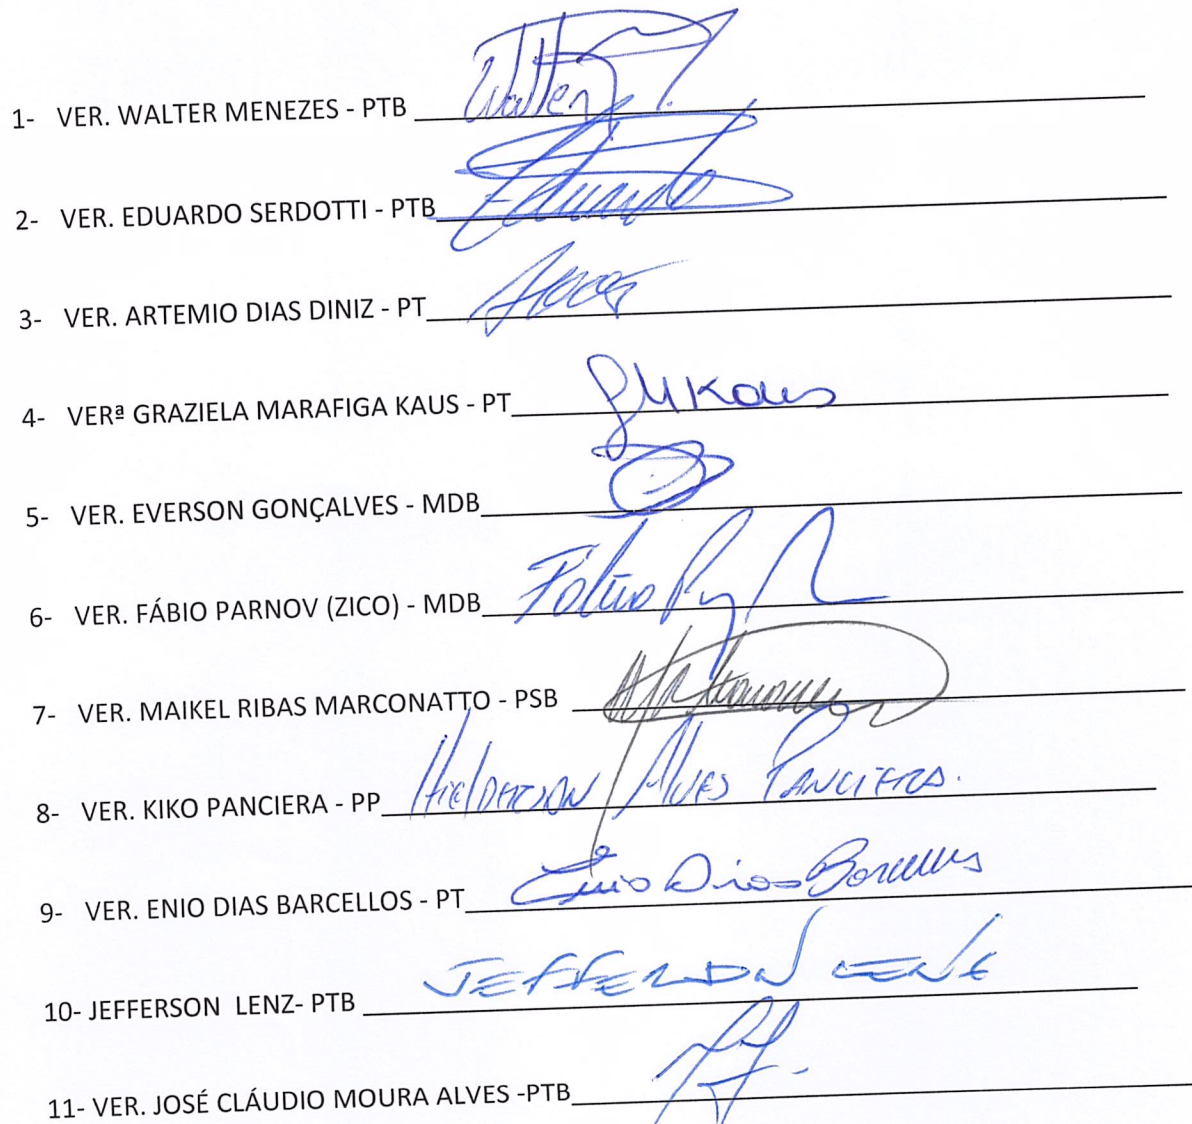 1- VER. WALTER MENEZES - PTB Walter
2- VER. EDUARDO SERDOTTI - PTB Eduardo
3- VER. ARTEMIO DIAS DINIZ - PT
4- VERª GRAZIELA MARAFIGA KAUS - PT GMKaus
5- VER. EVERSON GONÇALVES - MDB
6- VER. FÁBIO PARNOV (ZICO) - MDB Fábio
7- VER. MAIKEL RIBAS MARCONATTO - PSB
8- VER. KIKO PANCIERA - PP Alves PANCIERA.
9- VER. ENIO DIAS BARCELLOS - PT Enio Dias Barcellos
10- JEFFERSON LENZ- PTB JEFFERSON LENZ
11- VER. JOSÉ CLÁUDIO MOURA ALVES -PTB